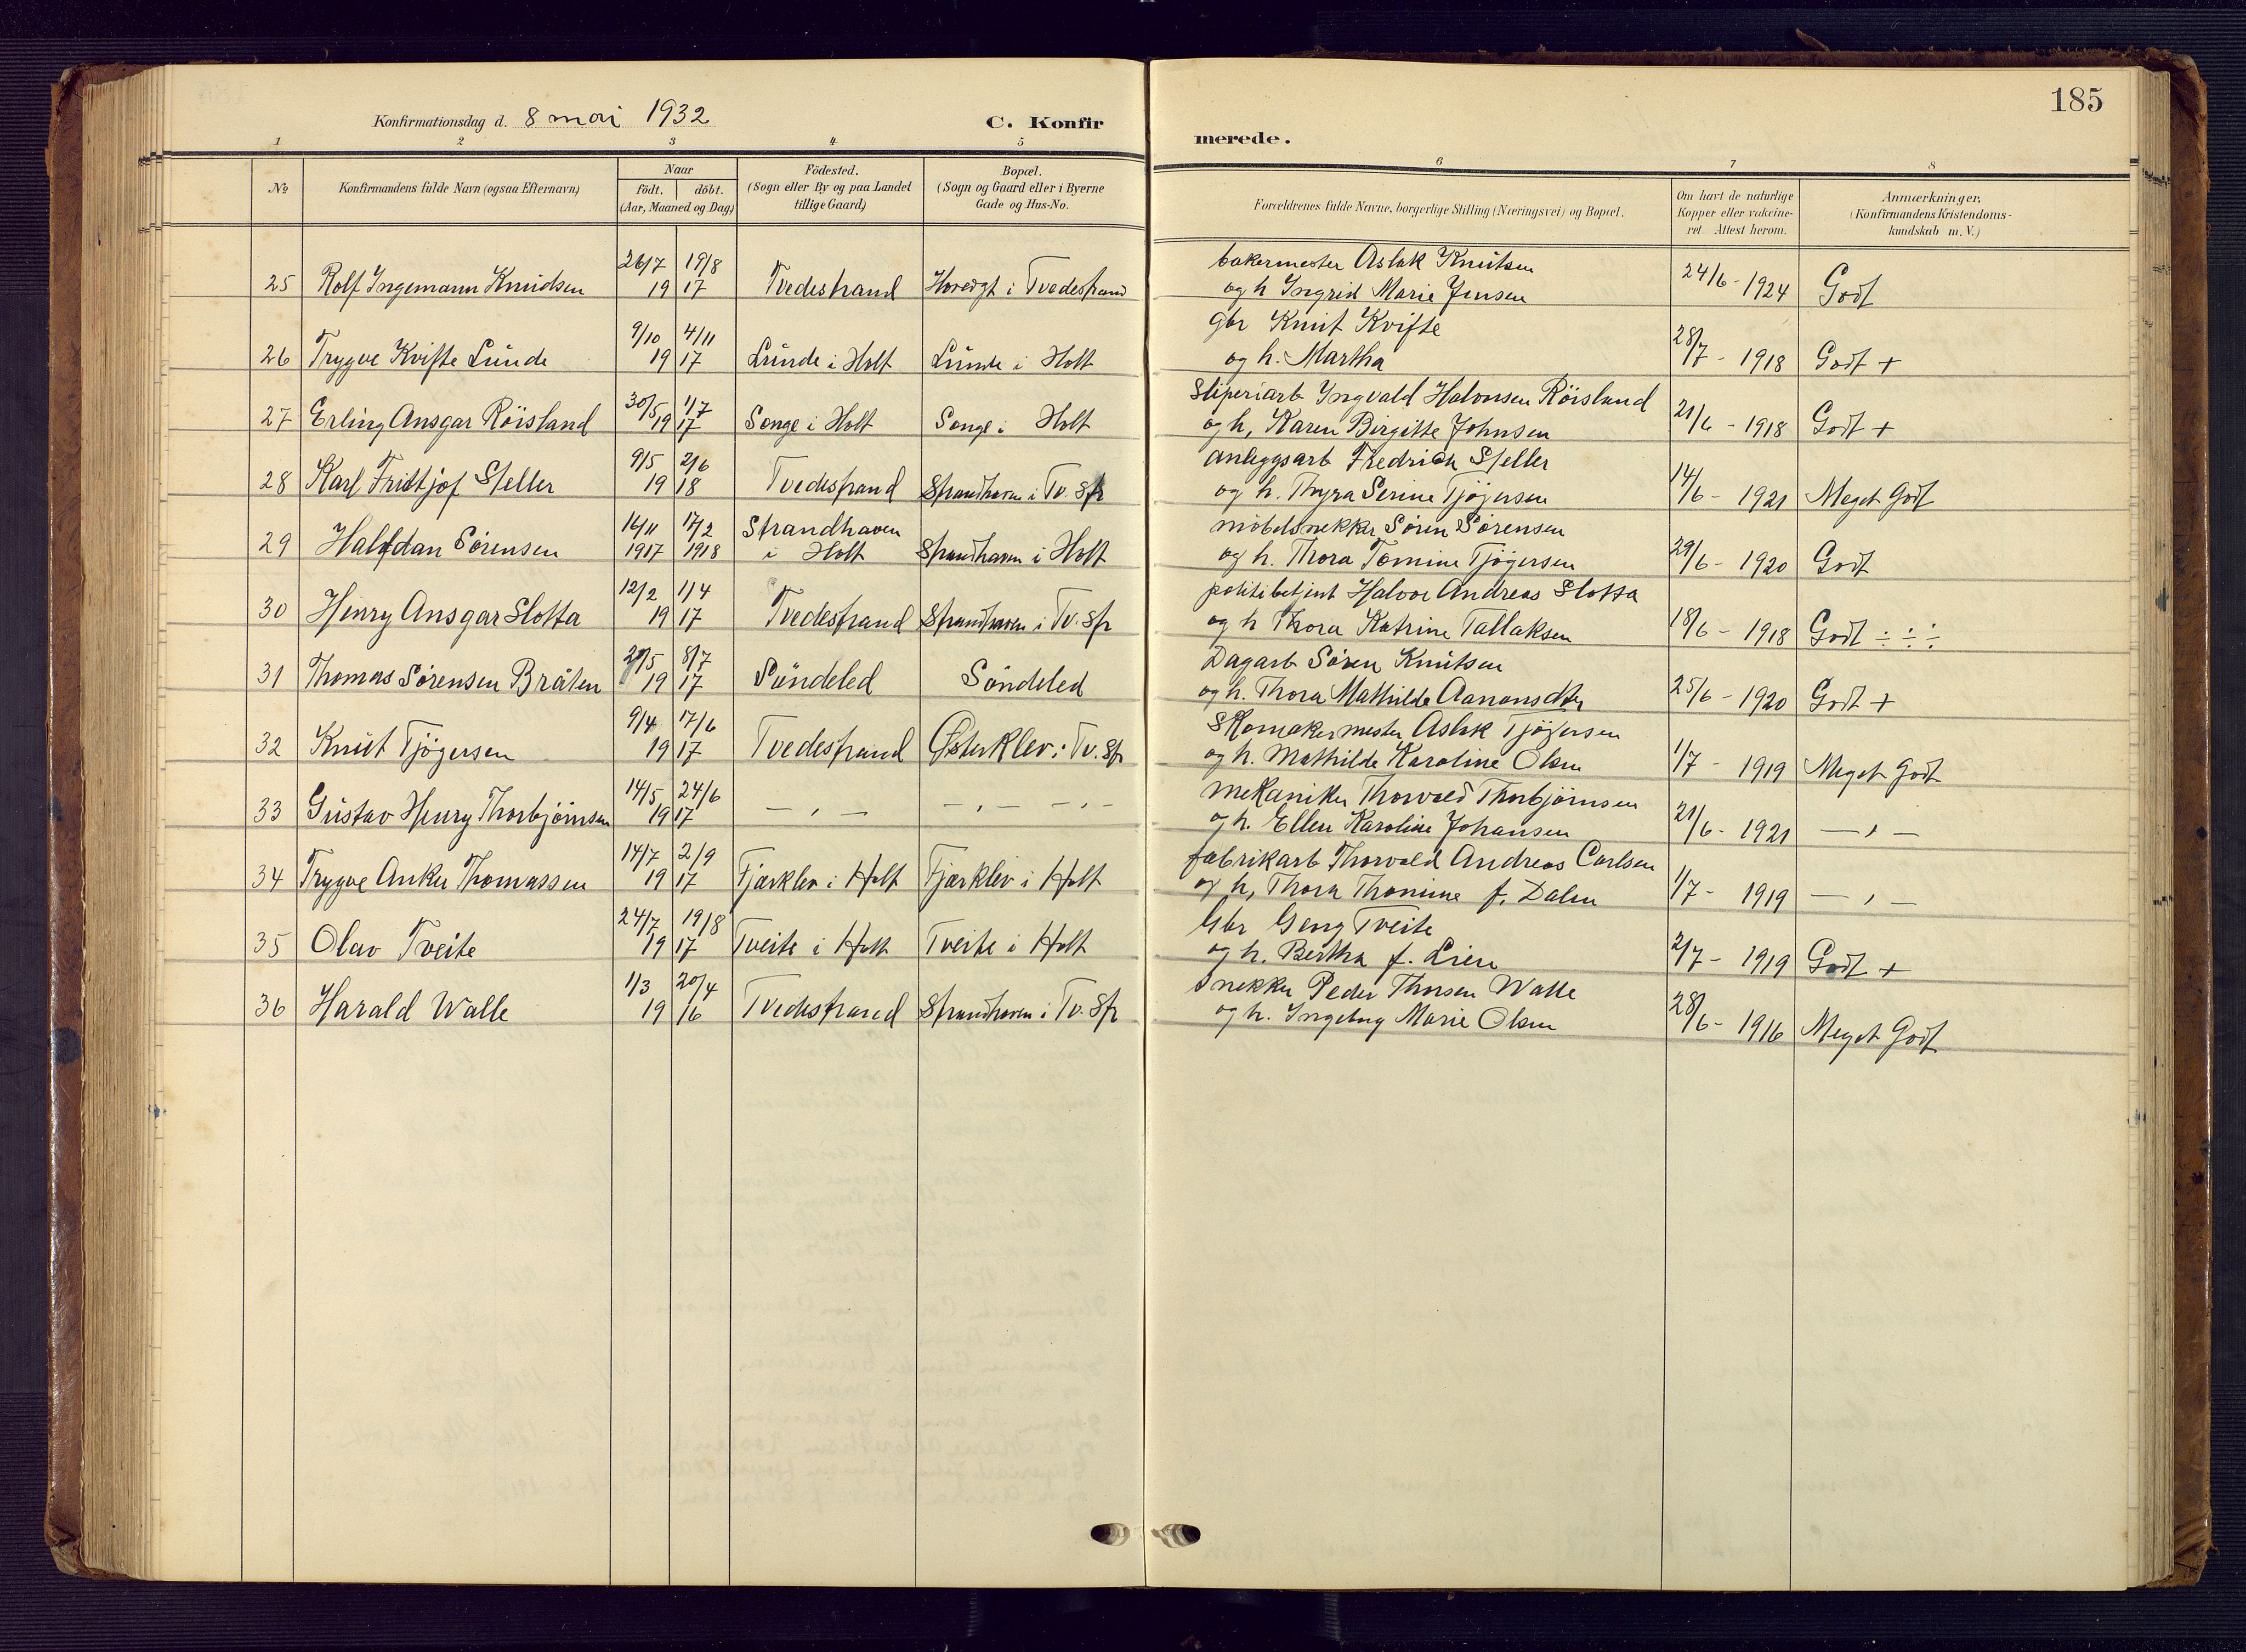 185
Konfirmationsdag d. 8 mai 1932
C. Konfir
merede.
1 2 3 4 5
6 7 8
№
Konfirmandens fulde Navn (ogsaa Efternavn)
Naar
födt. döbt.
(Aar, Maaned og Dag)
Födested.
(Sogn eller By og paa Landet
tillige Gaard)
Bopæl.
(Sogn og Gaard eller i Byerne
Gade og Hus-No.
Forældrenes fulde Navne, borgerlige Stilling (Næringsvei) og Bopæl.
Om havt de naturlige
Kopper eller vakcine-
ret. Attest herom.
Anmærkninger.
(Konfirmandens Kristendoms-
kundskab m. V.)
26/7 19/8 bakermester Aslak Knutsen
25 Rolf Ingemann Knudsen 19 17 Tvedestrand Hovedgt i Tvedestrand og h Ingrid Marie Jensen 24/6 - 1924 Godt
9/10 4/11 gbr Knut Kvifte
26 Trygve Kvifte Lunde 19 17 Lunde i Holt Lunde i Holt og h. Martha 28/7 - 1918 Godt +
30/5 1/7 Sliperiarb Ingvald Halvorsen Röisland
27 Erling Ansgar Röisland 19 17 Songe i Holt Songe i Holt og h, Karen Birgitte Johnsen 21/6 - 1918 Godt +
9/5 2/6 anleggsarb Fredrich Steller
28 Karl Fridtjof Steller 19 18 Tvedestrand Strandhaven i Tv. Str og h. Thyra Serine Tjögersen 14/6 - 1921 Meget Godt
16/11 17/2 Strandhaven möbelsnekker Sören Sörensen
29 Halfdan Sörensen 1917 1918 i Holt Strandhaven i Holt og h. Thora Tomine Tjögersen 29/6 - 1920 Godt
12/2 1/4 politibetjent Halvor Andreas Slotta
30 Henry Ansgar Slotta 19 17 Tvedestrand Strandhaven i Tv. Str og h Thora Katrine Tallaksen 18/6 - 1918 Godt ÷ ÷ ÷
/5 8/7 Dagarb Sören Knutsen
31 Thomas Sörensen Bråten 19 17 Söndeled Söndeled og h. Thora Mathilde Aanonsdtr 25/6 - 1920 Godt +
9/4 17/6 Skomakermester Aslak Tjögersen
32 Knut Tjögersen 19 17 Tvedestrand Østerklev i Tv. Str og h. Mathilde Karoline Olsen 1/7 - 1919 Meget Godt
14/5 24/6 Mekaniker Thorvald Thorbjörnsen
33 Gustav Henry Thorbjörnsen 19 17 — „ — — „ — — „ — og h. Ellen Karoline Johansen 21/6 - 1921 — „ —
14/7 2/9 fabrikarb Thorvald Andreas Carlsen
34 Trygve Anker Thomassen 19 17 Fjærklev i Holt Fjærklev i Holt og h, Thora Thomine f. Dalen 1/7 - 1919 — „ —
24/7 19/8 Gbr Georg Tveite
35 Olav Tveite 19 17 Tveite i Holt Tveite i Holt og h. Bertha f. Lien 2/7 - 1919 Godt +
1/3 20/4 Snekker Peder Thorsen Walle
36 Harald Walle 19 16 Tvedestrand Strandhaven i Tv. Str og h. Ingeborg Marie Olsen 28/6 - 1916 Meget Godt